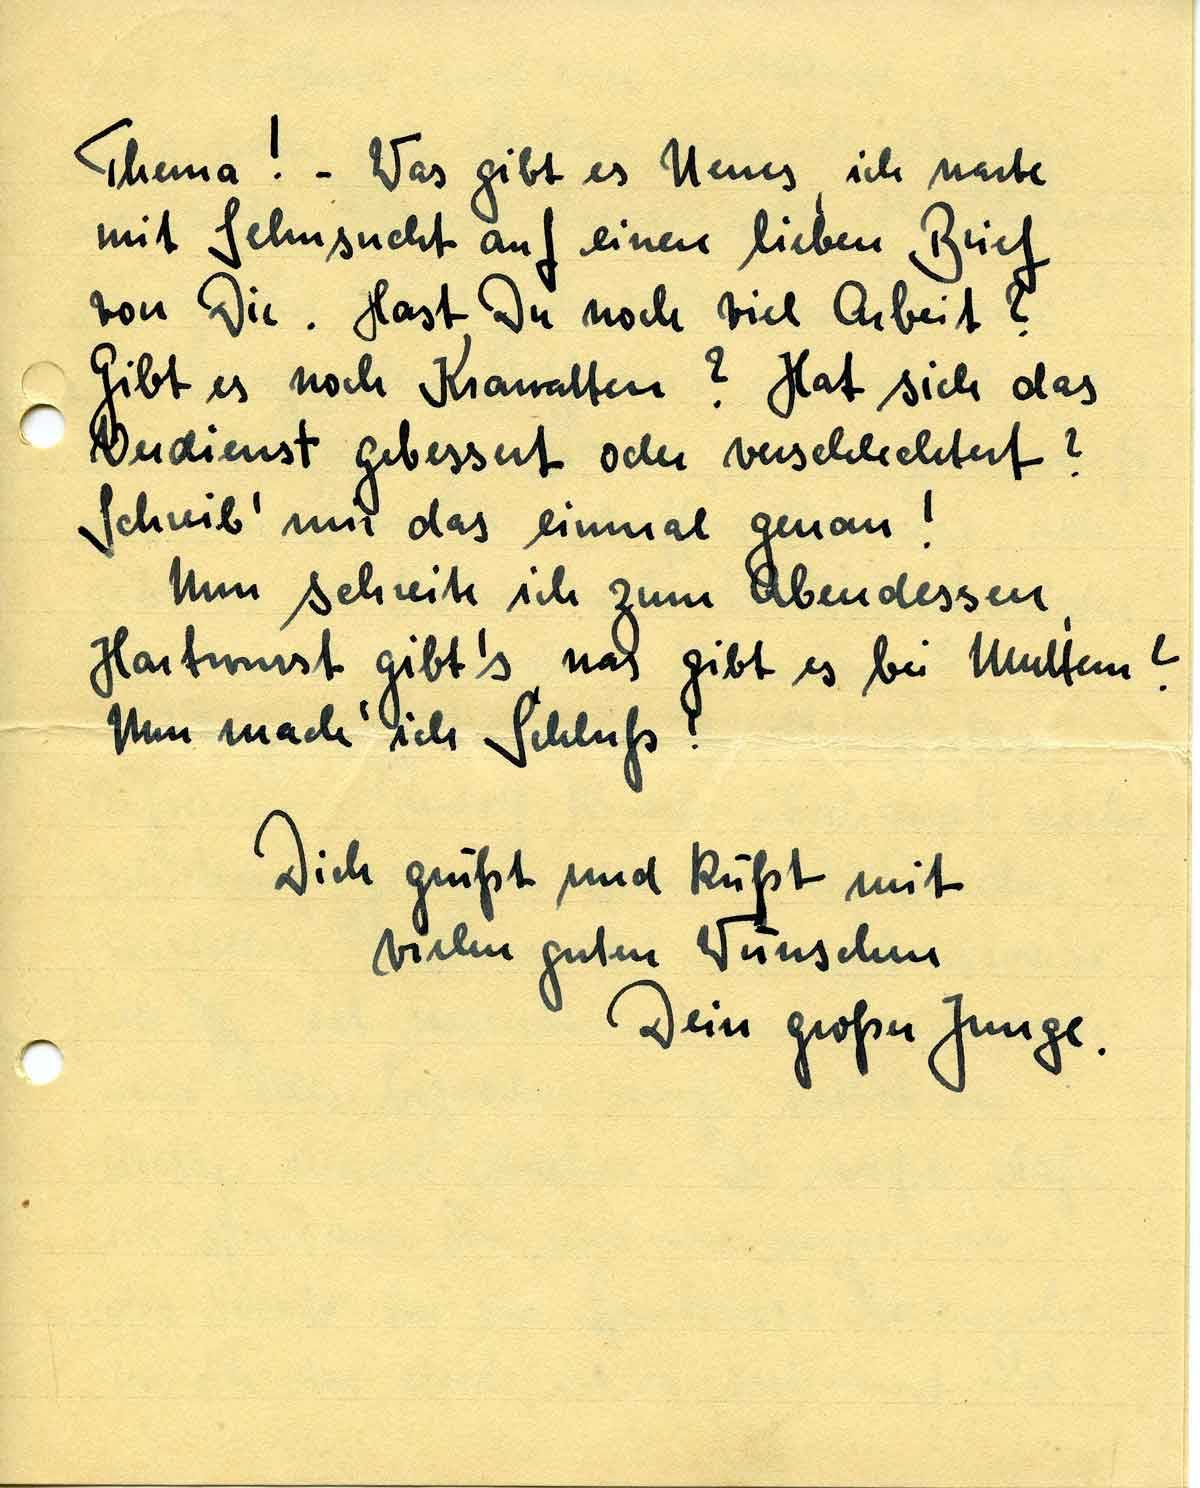 Thema! - Was gibt es Neues, ich warte
mit Sehnsucht auf einen lieben Brief
von Dir. Hast Du noch viel Arbeit?
Gibt es noch Krawatten? Hat sich das
Verdienst gebessert oder verschlechtert?
Schreib' mir das einmal genau!
Nun schreite ich zum Abendessen,
Hartwurst gibt's, was gibt es bei Muttern?
Nun mach' ich Schluß!
Dich grüßt und küßt mit
vielen guten Wünschen
Dein großer Junge.